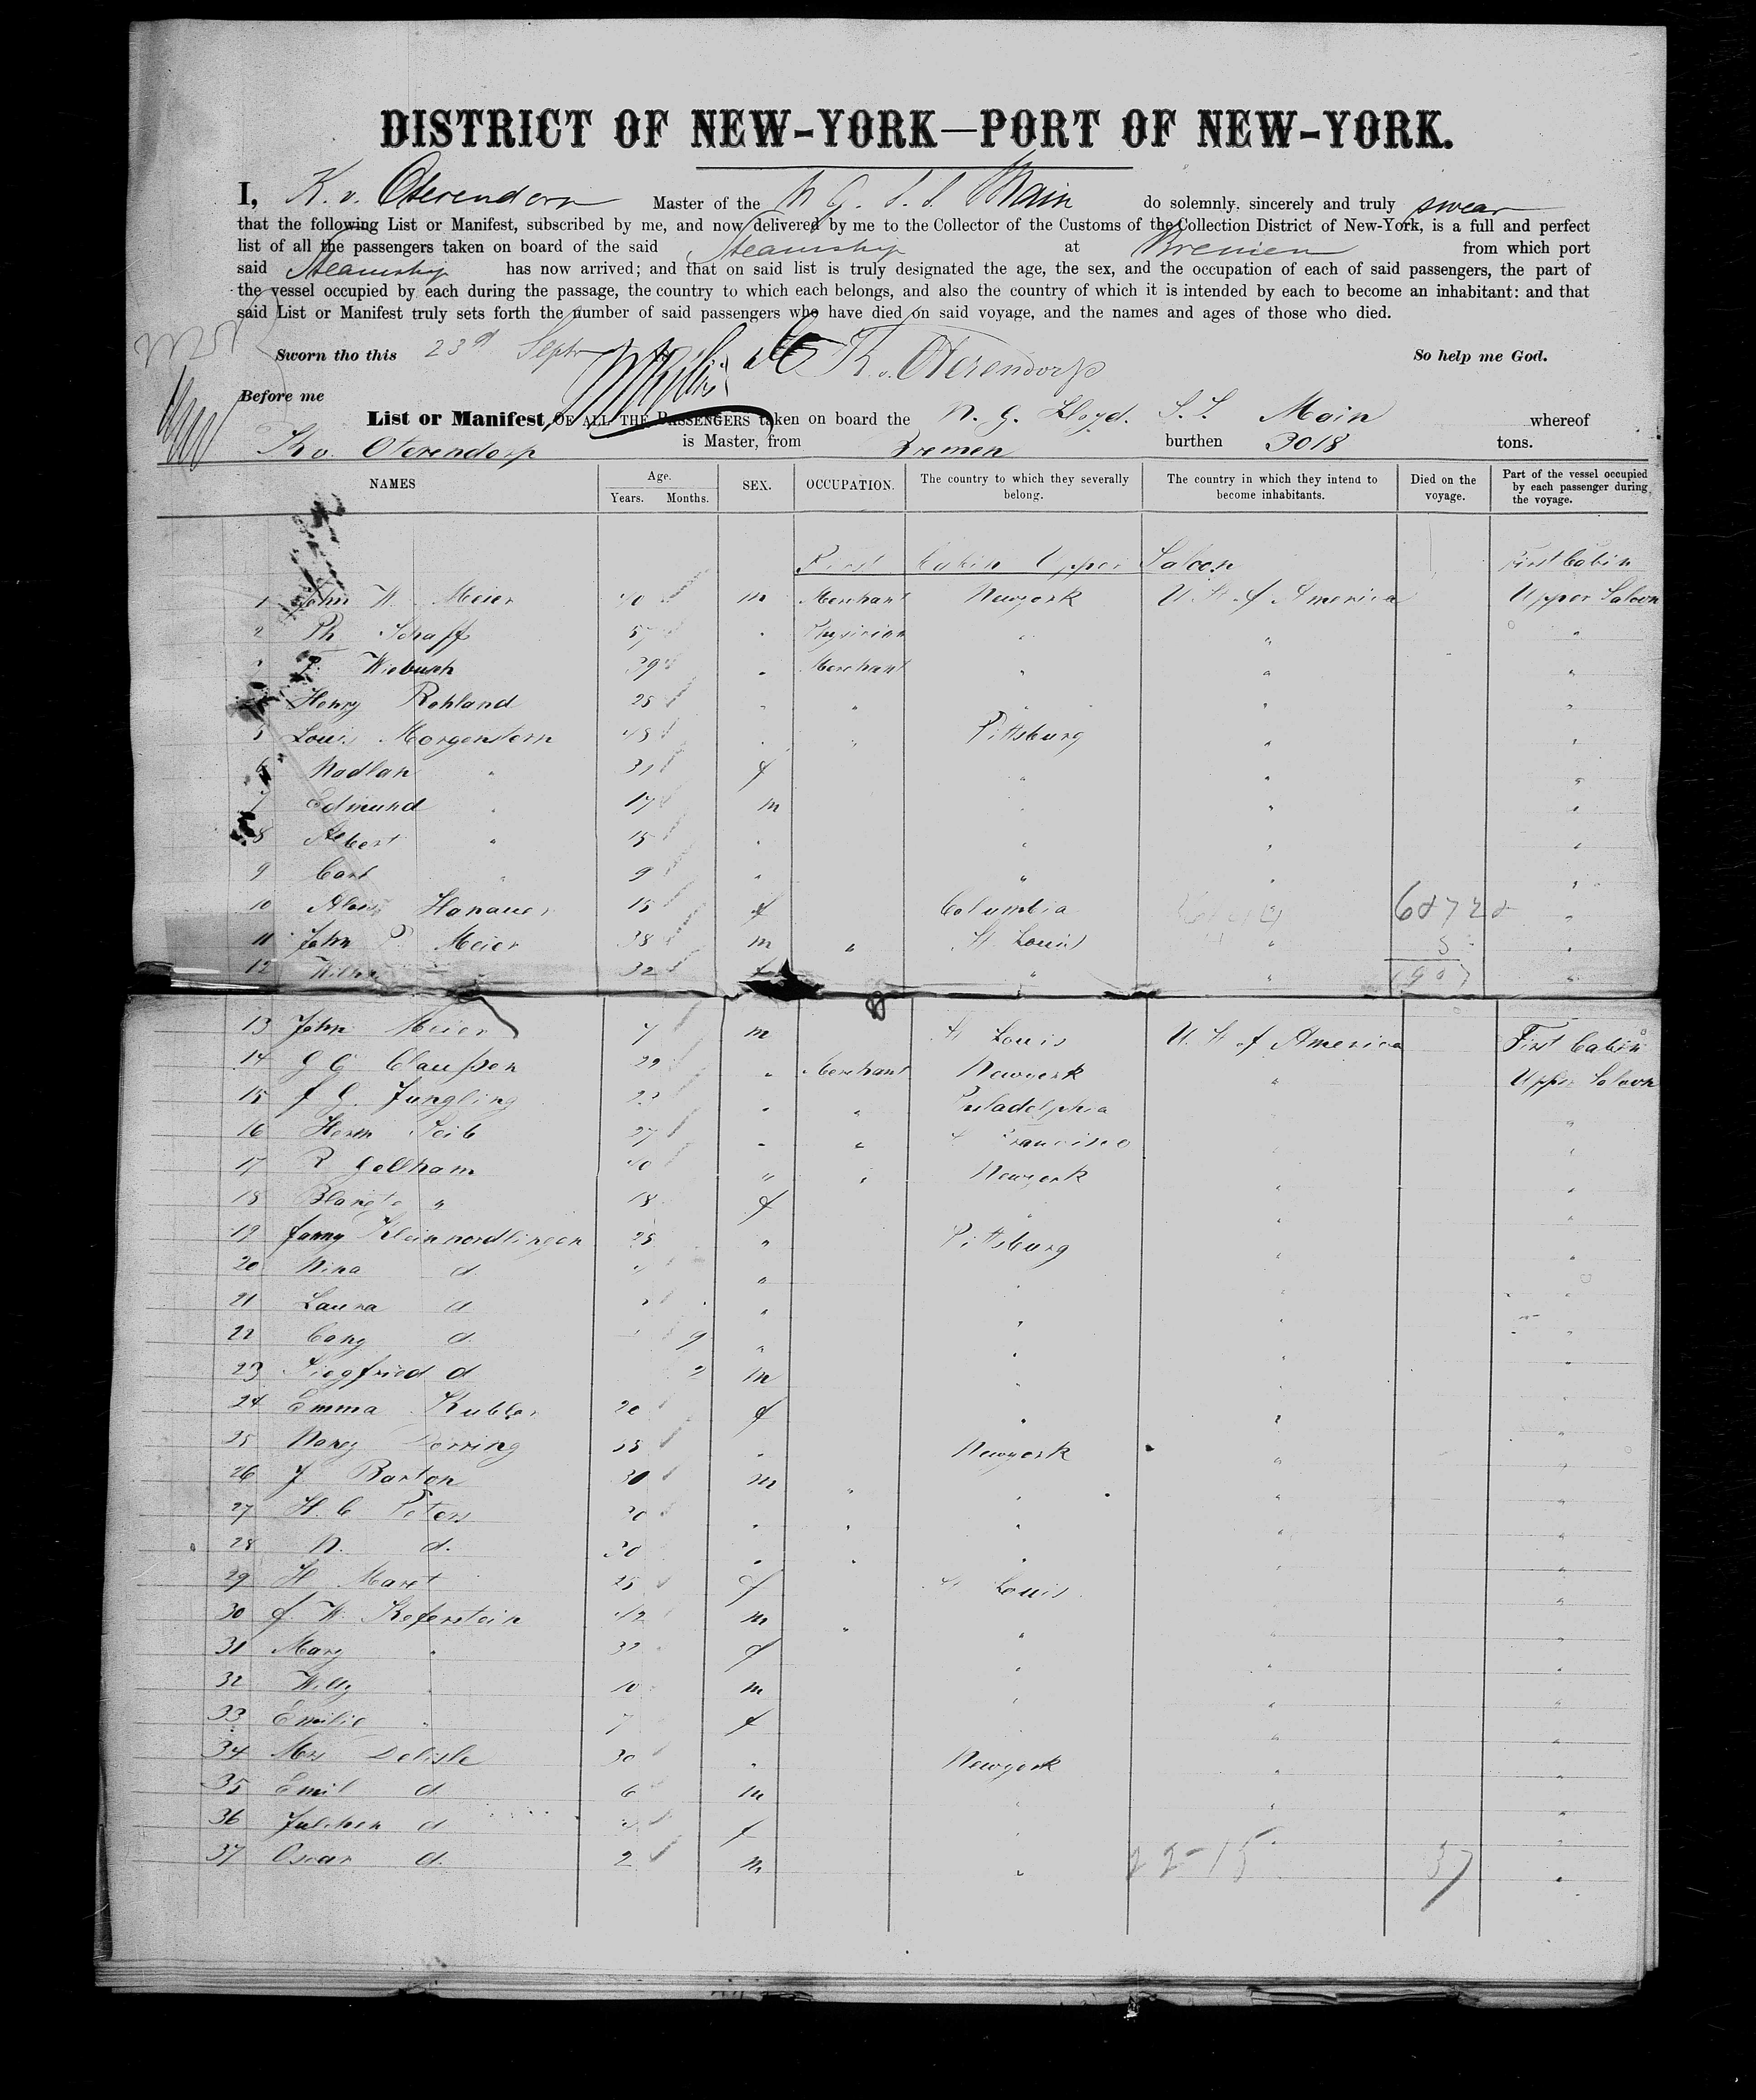 DISTRICT OF NEW-YORK—PORT OF NEW-YORK.
I, K. v. Oterendorp Master of the N. G. S. S. Main do solemnly, sincerely and truly swear
that the following List or Manifest, subscribed by me, and now delivered by me to the Collector of the Customs of the Collection District of New-York, is a full and perfect
list of all the passengers taken on board of the said Steamship at Bremen from which port
said Steamship has now arrived; and that on said list is truly designated the age, the sex, and the occupation of each of said passengers, the part of
the vessel occupied by each during the passage, the country to which each belongs, and also the country of which it is intended by each to become an inhabitant: and that
said List or Manifest truly sets forth the number of said passengers who have died on said voyage, and the names and ages of those who died.
Sworn tho this 23d Septr K. v. Oterendorp So help me God.
Before me
List or Manifest OF ALL THE PASSENGERS taken on board the N. G. Lloyd. S. S. Main whereof
K v. Oterendorp is Master, from Bremen burthen 3018 tons.
NAMES Age. Years. Months. SEX. OCCUPATION. The country to which they severally belong. The country in which they intend to become inhabitants. Died on the voyage. Part of the vessel occupied by each passenger during the voyage.
First Cabin Upper Saloon First Cabin
1 John W. Meier 40 m Merchant Newyork U. St. of America Upper Saloon
2 Ph Schaff 57 " Physician " " "
F. Wiebusch 39 " Merchant " " "
Henry Rohland 25 " " " " "
5 Louis Morgenstern 48 " " Pittsburg " "
6 Nadlan " 31 f " " "
7 Edmund " 17 m " " "
8 Albert " 15 " " " "
9 Carl " 9 " " " "
10 Hanauer 15 f Columbia " 68728 "
11 John P. Meier 38 m " St. Louis " 5 "
12 32 f " " "
13 John Meier 7 m St Louis U. St of America First Cabin
14 G C Claußen 22 " Merchant Newyork " Upper Saloon
15 J G. Jungling " " Philadelphia "
16 Herm 27 " " S Francisco "
17 R Gellham 40 " " Newyork "
18 " 18 f " " "
19 Fanny Kleinnordlingen 25 " Pittsburg " "
20 Nina d " " " "
21 Laura d " " " "
22 Cony d. 9 " " " "
23 Siegfried d 2 m " " "
24 Emma Kubler 20 f " " "
25 Nancy 35 " Newyork " "
26 J Barton 30 m " " " "
27 H. C Peters 30 " " " " "
28 N. d. 30 " " " " "
29 H Maret 25 f St Louis "
30 F. W. Keferstein 42 m " " " "
31 Mary " 32 f " " "
32 Willy " 10 m " " "
33 Emilie " 7 f " " "
34 Mrs Delisle 30 " Newyork " "
35 Emil d. 6 m " " "
36 Julchen d f " "
37 Oscar d. 2 m " 22-15 37 "